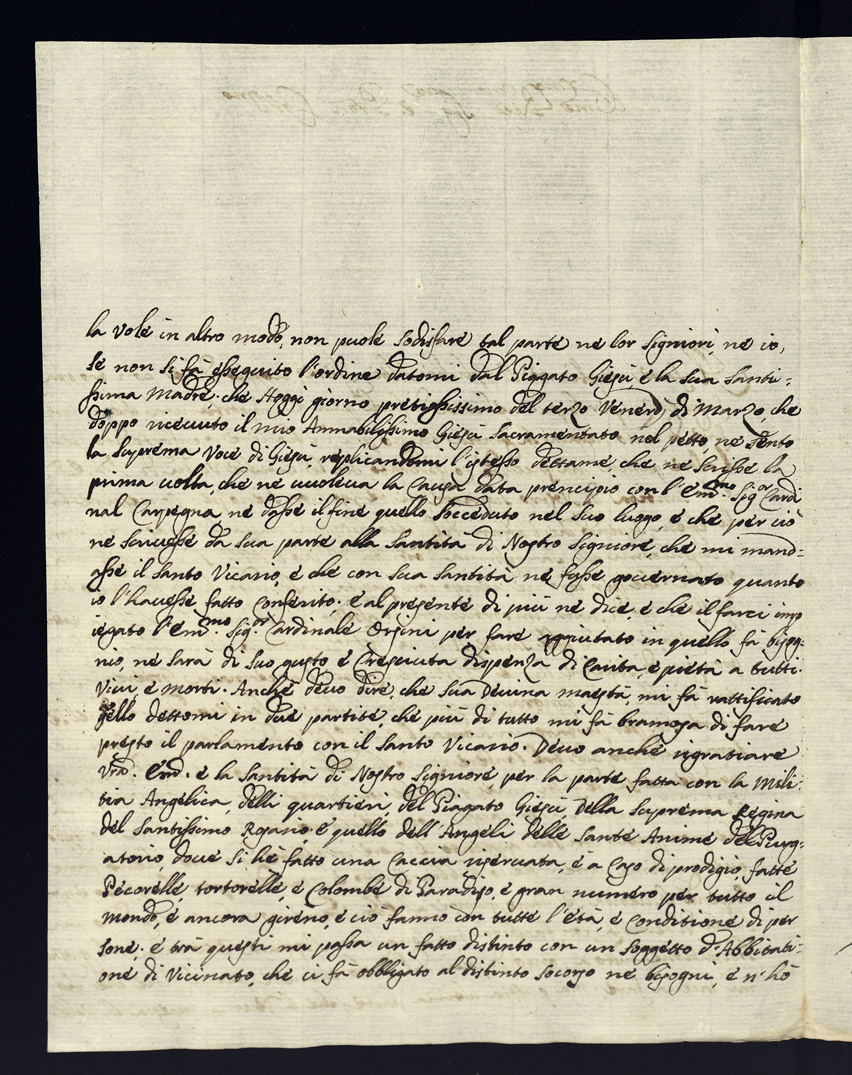 la vole in altro modo, non puole sodisfare tal parte ne lor Signiori, ne io,
se non si fà esseguito l'ordine datomi dal Piggato Giesù e la sua Santi=
ssima Madre. che Hoggi giorno pretiossissimo del terzo Venerdì di Marzo, che
doppo riceuuto il mio Annabilissimo Giesù Sacramentato nel petto ne sento
la suprema voce di Giesù, replicandomi l'istesso dettame, che ne scrisse la
prima uolta, che ne uuoleua la Causa data prencipio con l'Em.mo Sig.or Cardi
nal Carpegna, ne dasse il fine quello socceduto nel suo luogo, e che per ciò
ne scriuesse da sua parte alla Santità di Nostro Signiore, che mi mand=
asse il Santo Vicario, e che con sua Santità ne fosse gouernato quanto
io l'hauesse fatto conferito. e al presente di più ne dice, e che il farci imp
iegato l'Em.mo Sig.or Cardinale Orsini per fare aggiutato in quello fà bisog=
nio, ne sarà di suo gusto e Cresciuta dispenza di Carità, e pietà a tutti.
Viui, e Morti. Anche deuo dire, che sua Deuina maestà, mi fà rattificato
dettomi in due partite, che più di tutto mi fà bramosa di fare
presto il parlamento con il Santo Vicario. Deuo anche rigratiare
Vra. Em. e la Santità di Nostro Signiore, per la parte fatta con la Mili=
tia Angelica, delli quartieri, del Piagato Giesù, della Suprema Regina
del Santissimo Rosario. e quello dell'Angeli delle Sante Anime del Purg=
atorio, doue si hè fatto una Caccia riseruata, e a Caso di prodigio, fatte
Pecorelle, tortorelle, e Colombe di Paradiso, e gran numero per tutto il
mondo, e ancora gireno, e ciò fanno con tutte l'età, e Conditione di per
sone. e trà questi mi passa un fatto distinto con un soggetto d'Abbitati=
one di Vicinato, che ci fà obbligato al distinto socorso ne bisogni, e n'hò